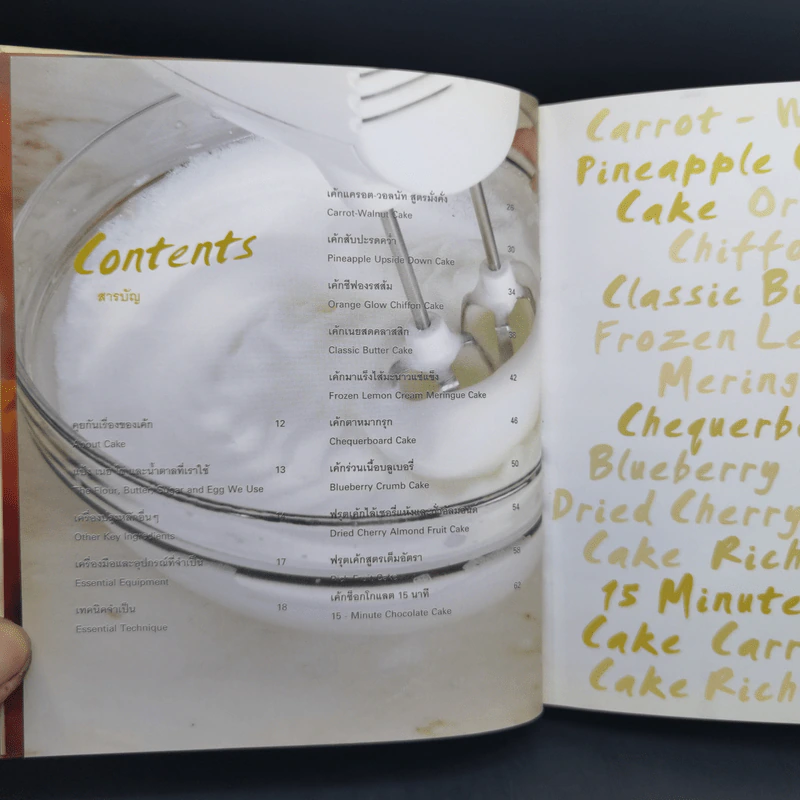 Contents
สารบัญ
คุยกันเรื่องของเค้ก 12
About Cake
แป้ง เนย ไข่ และน้ำตาลที่เราใช้ 13
The Flour, Butter, Sugar and Egg We Use
เครื่องปรุงหลักอื่นๆ
Other Key Ingredients
เครื่องมือและอุปกรณ์ที่จำเป็น 17
Essential Equipment
เทคนิคจำเป็น 18
Essential Technique
เค้กแครอต-วอลนัท สูตรมั่งคั่ง 26
Carrot-Walnut Cake
เค้กสับปะรดคว่ำ 30
Pineapple Upside Down Cake
เค้กชีฟองรสส้ม 34
Orange Glow Chiffon Cake
เค้กเนยสดคลาสสิก 38
Classic Butter Cake
เค้กมาแร็งไส้มะนาวแช่แข็ง 42
Frozen Lemon Cream Meringue Cake
เค้กตาหมากรุก 46
Chequerboard Cake
เค้กร่วนเนื้อบลูเบอรี่ 50
Blueberry Crumb Cake
54
Dried Cherry Almond Fruit Cake
ฟรุตเค้กสูตรเต็มอัตรา 58
Rich Fruit Cake
เค้กช็อกโกแลต 15 นาที 62
15 - Minute Chocolate Cake
Carrot -
Pineapple
Cake Or
Chiffo
Classic Bu
Frozen Le
Mering
Chequerb
Blueberry
Dried Cherry
Cake Rich
15 Minute
Cake Carr
Cake Rich